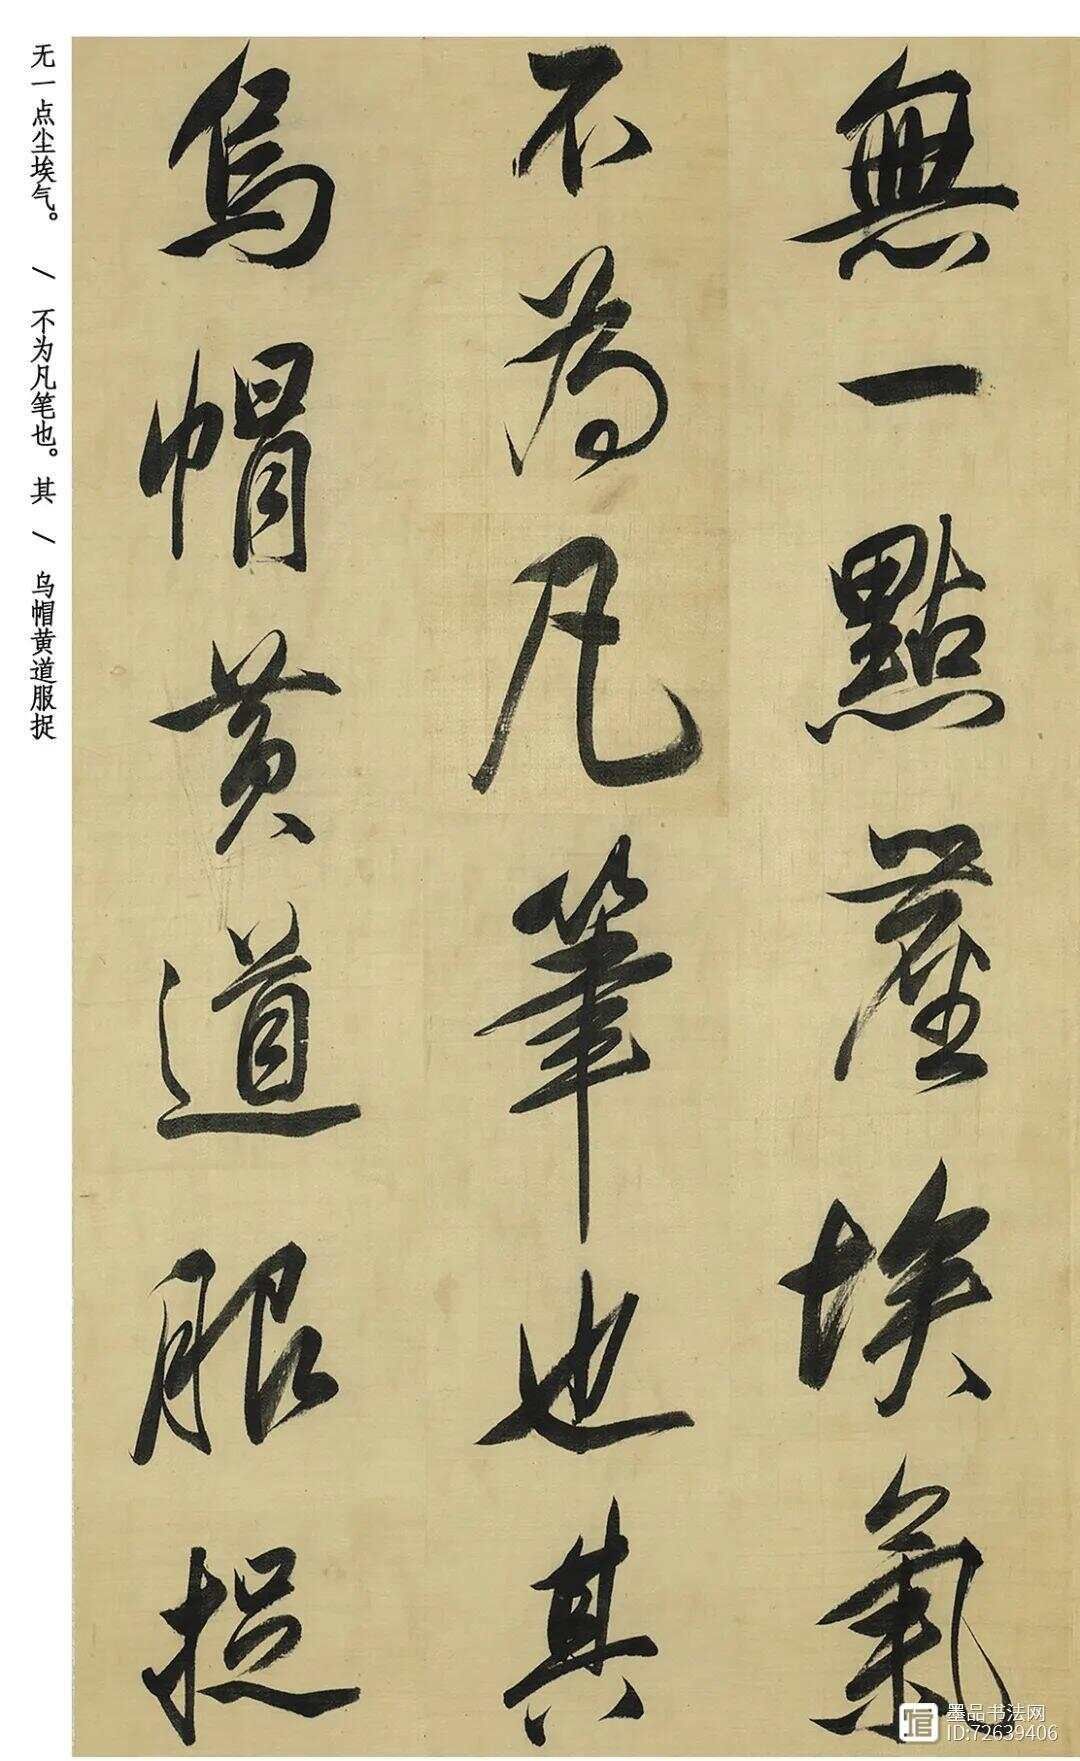 無一點塵埃氣
不為凡筆也其
烏帽黃道服捉
无一点尘埃气。 / 不为凡笔也。其 / 乌帽黄道服捉
墨品书法网
ID:72639406